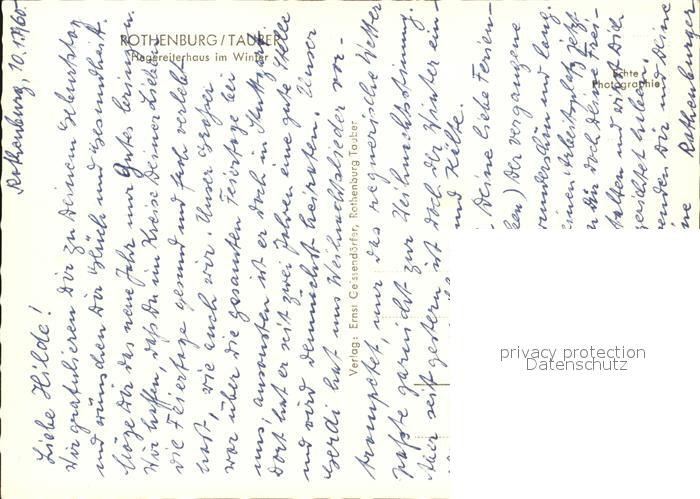 ROTHENBURG / TAUBER
Hegereiterhaus im Winter
Echte
Photographie
Verlag: Ernst Geissendörfer, Rothenburg Tauber
Rothenburg, 10.1.1960
Liebe Hilde!
Wir gratulieren Dir zu Deinem Geburtstag
und wünschen Dir Glück und Gesundheit.
Möge Dir das neue Jahr nur Gutes bringen.
Wir hoffen, daß Du im Kreise Deiner Lieben
die Feiertage gesund und froh verlebt
hast, wie auch wir. Unser Großer
war über die gesamten Feiertage bei
uns, ansonsten ist er doch in Stuttgart.
Dort hat er seit zwei Jahren eine gute Stelle
und wird demnächst heiraten. Unser
Gerdi hat uns Weihnachtslieder vor-
trompetet, nur das regnerische Wetter
paßte garnicht zur Weihnachtsstimmung
Hier seit gestern ist doch der Winter ein-
und Kälte.
Deine liebe Ferien-
Der vergangene
wunderschön und lang.
einen Arbeitsplatz jetzt
Du doch Deine Frei-
und wirst Dich
Dir und Deine
Rothenburger
privacy protection
Datenschutz